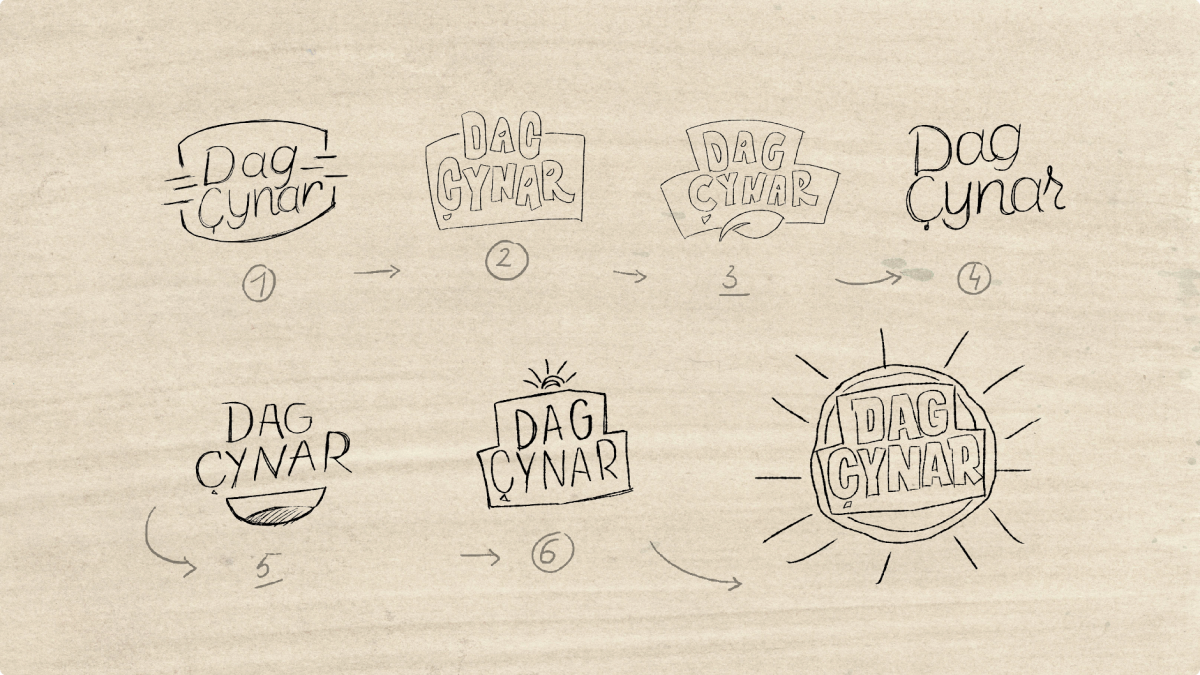 Dag
Çynar
1
DAG
ÇYNAR
2
DAG
ÇYNAR
3
Dag
Çynar
4
DAG
ÇYNAR
5
DAG
ÇYNAR
6
DAG
ÇYNAR